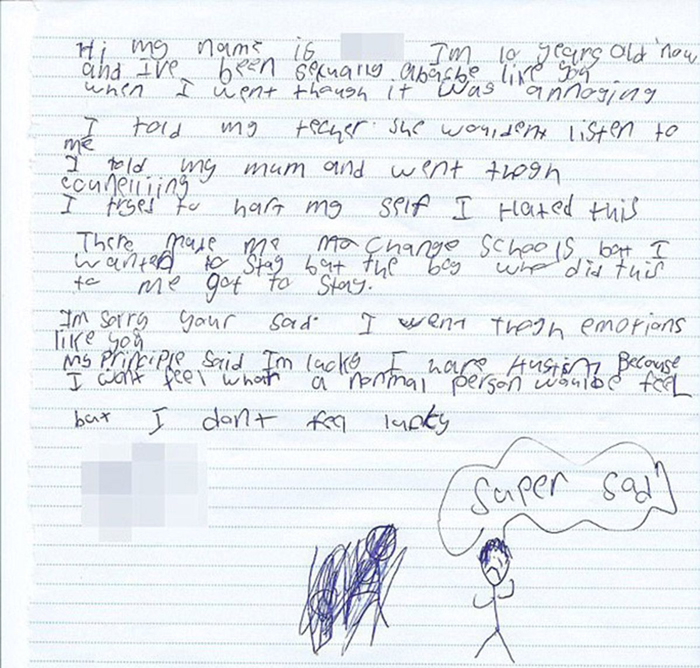 Hi my name is I'm 10 years old now
and I've been sexually abacbe like you
when I went though it was annoging
I told my techer she wouldent listen to
me
I told my mum and went trogh
counelliing
I tryes to hart my self I Hated this
There made me to change schools bat I
wanted to stay bat the boy who did this
to me got to stay.
Im sorry your sad I went trogh emotions
like you
My principle said Im lacky I have Austism Because
I wont feel what a normal person woulbe feel
bat I don't feel lacky
Super sad